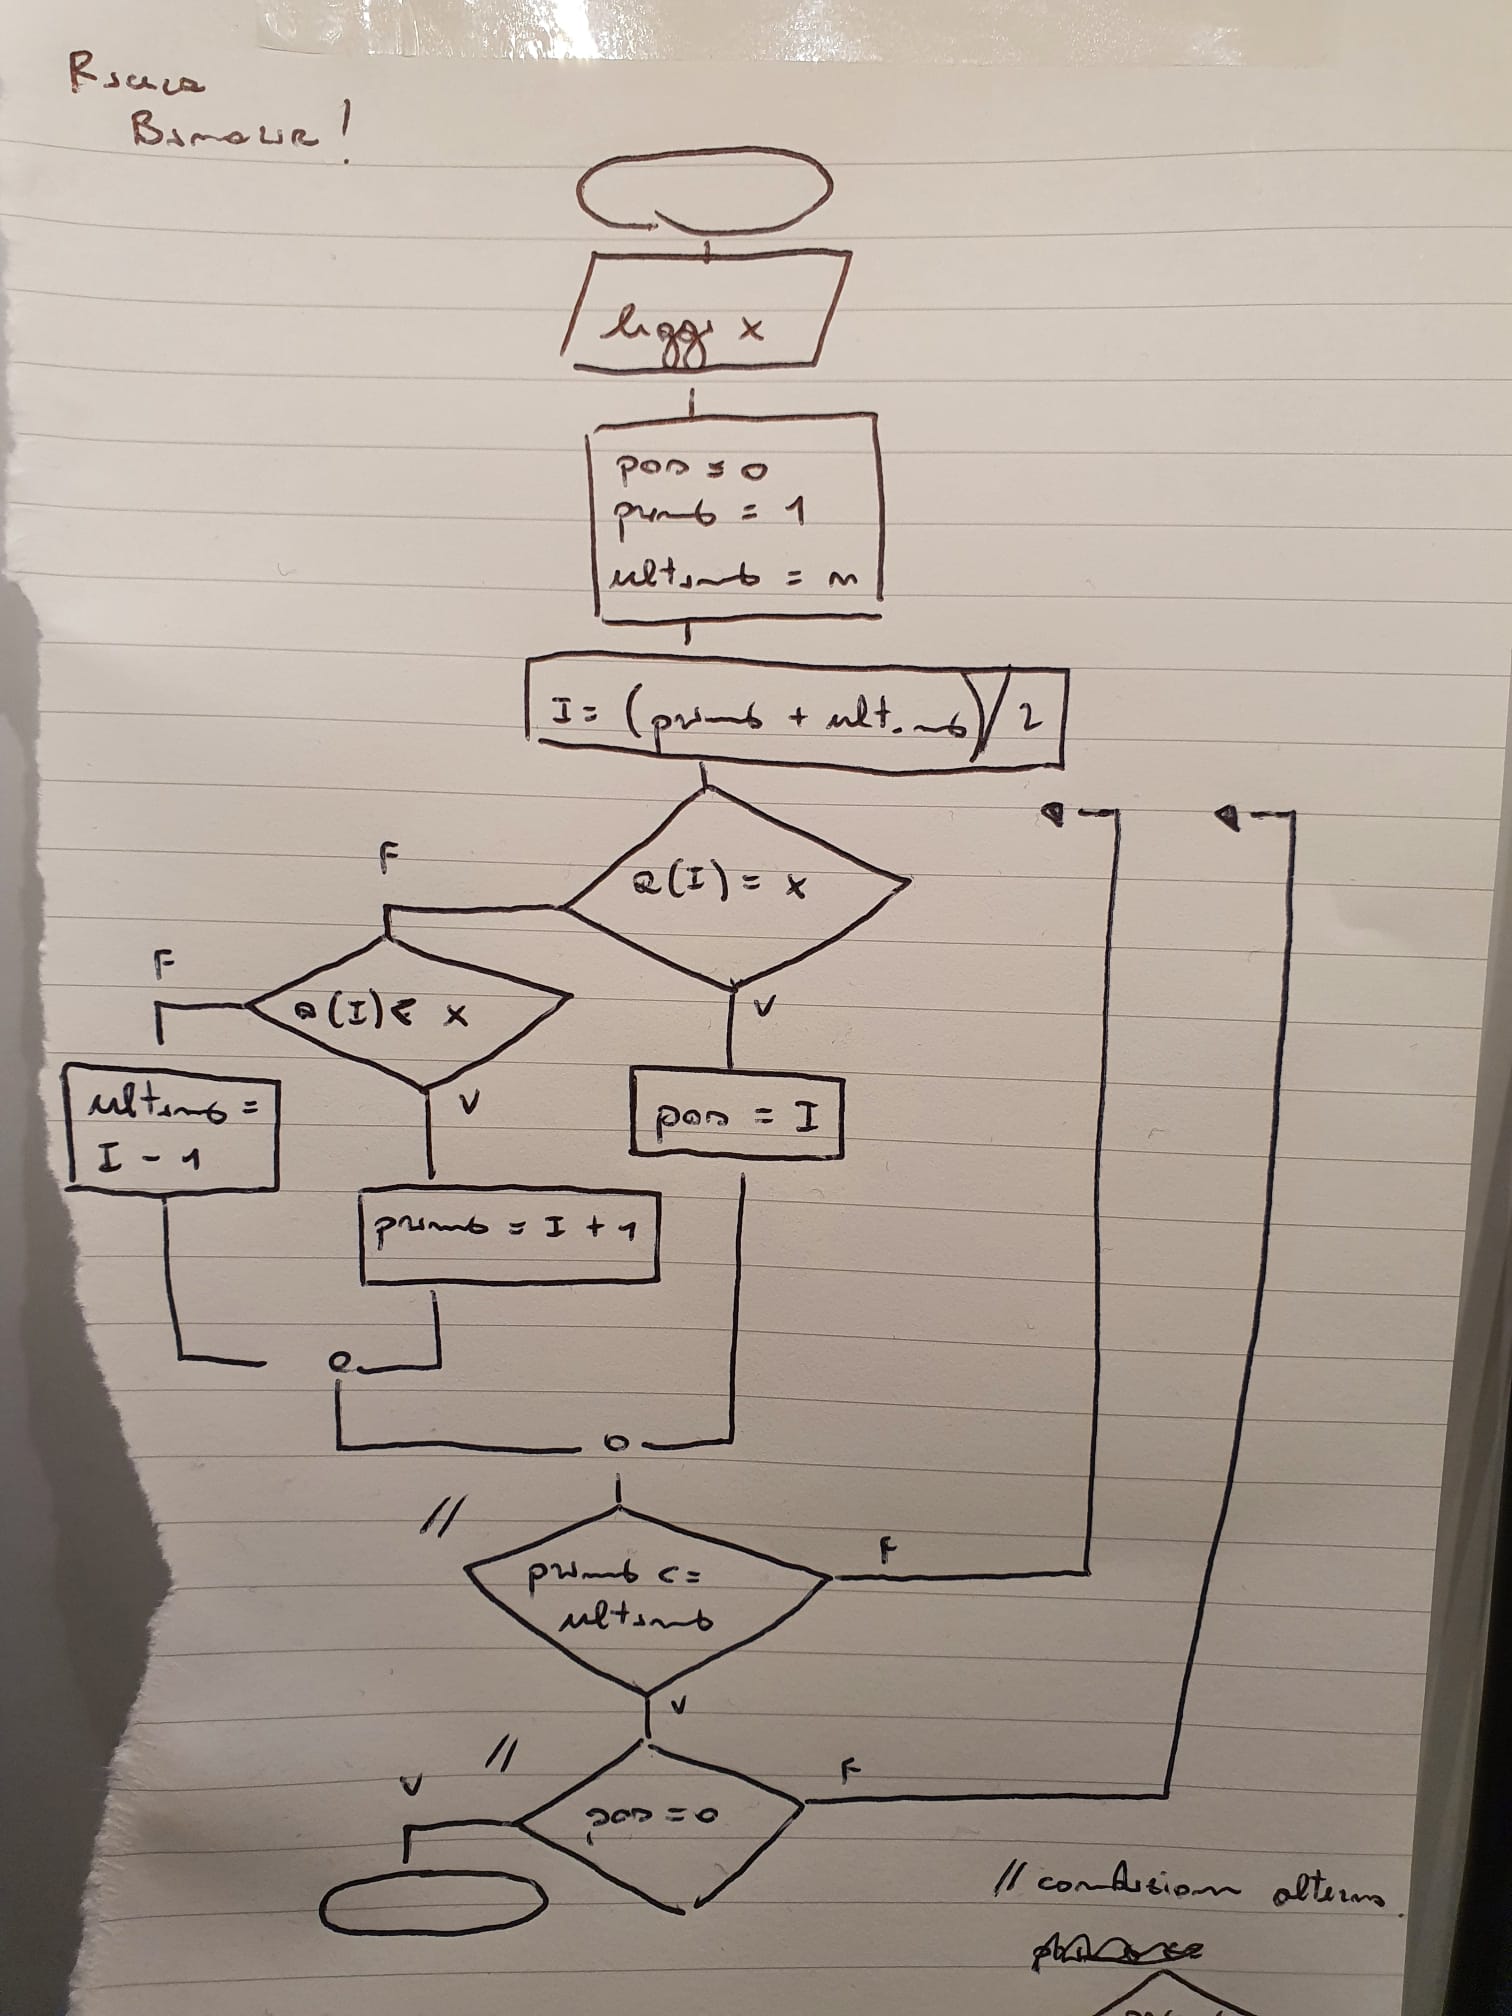 Ricerca
Binaria!
leggi x
pos = 0
primo = 1
ultimo = n
I = (primo + ultimo)/2
F
a(I) = x
F
a(I) < x
V
V
ultimo =
I - 1
pos = I
primo = I + 1
//
primo <=
ultimo
F
V
//
V
F
pos = 0
// condizioni